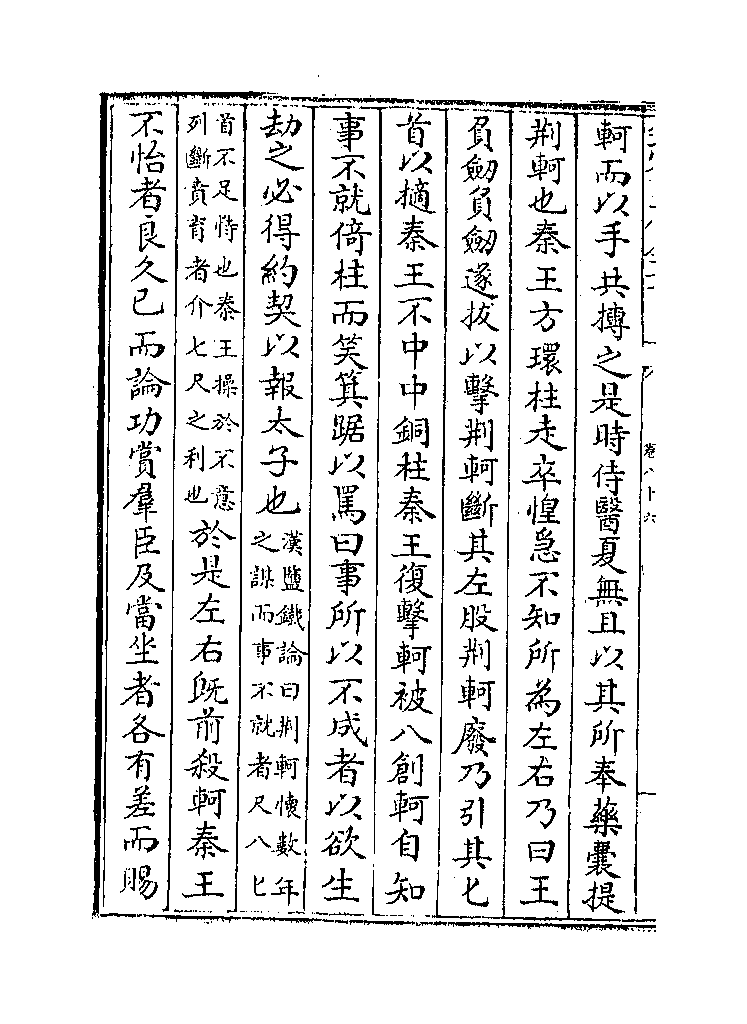 軻而以手共搏之是時侍醫夏無且以其所奉藥囊提
荆軻也秦王方環柱走卒惶急不知所為左右乃曰王
負劒負劒遂拔以擊荆軻斷其左股荆軻廢乃引其匕
首以擿秦王不中中銅柱秦王復擊軻被八創軻自知
事不就倚柱而笑箕踞以罵曰事所以不成者以欲生
劫之必得約契以報太子也漢鹽鐵論曰荆軻懷數年之謀而事不就者尺八匕
首不足恃也秦王操於不意列斷賁育者介七尺之利也於是左右既前殺軻秦王
不怡者良久已而論功賞羣臣及當坐者各有差而賜
卷八十六